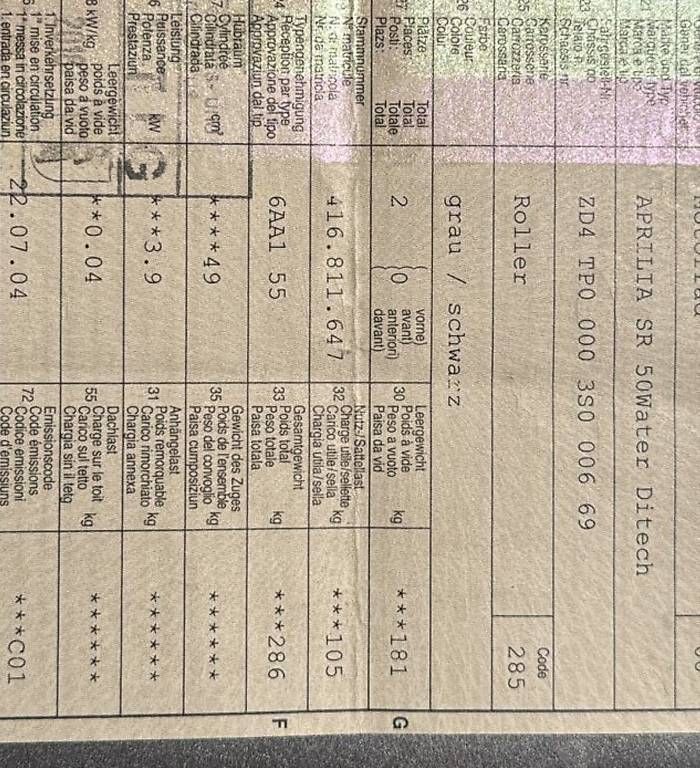 21 Marke und Typ
Marque et type
Marca e tipo
APRILIA SR 50Water Ditech
23
Châssis no
Telaio n.
Schassis nr.
ZD4 TP0 000 3S0 006 69
25 Karosserie
Carrosserie
Carrozzeria
Carossaria
Roller
Code
285
26 Farbe
Couleur
Colore
Colur
grau / schwarz
27 Plätze: Total
Places Total
Posti: Totale
Plazs: Total
2 ( 0
vorne)
avant)
anteriori)
davant)
30 Leergewicht
Poids à vide
Peso a vuoto kg
Paisa da vid
***181
G
Stammnummer
N° matricule
N. di matricola
Nr. da matricla
416.811.647
32 Nutz-/Sattellast
Charge utile/sellette
Carico utile/sella kg
Chargia utila/sella
***105
24 Typengenehmigung
Réception par type
Approvazione del tipo
Approvaziun dal tip
6AA1 55
33 Gesamtgewicht
Poids total
Peso totale kg
Paisa totala
***286
F
37 Hubraum
Cylindrée
Cilindrata cm³
Cilindrada
****49
35 Gewicht des Zuges
Poids de l'ensemble
Peso del convoglio kg
Paisa cumposiziun
******
76 Leistung
Puissance
Potenza kW
Prestaziun
***3.9
31 Anhängelast
Poids remorquable
Carico rimorchiato kg
Chargia annexa
******
78 kW/kg
Leergewicht
poids à vide
peso a vuoto
paisa da vid
**0.04
55 Dachlast
Charge sur le toit
Carico sul tetto kg
Chargia sin il tetg
******
36 1. Inverkehrsetzung
1re mise en circulation
1a messa in circolazione
1. entrada en circulaziun
22.07.04
72 Emissionscode
Code émissions
Codice emissioni
Code d'emissiuns
***C01